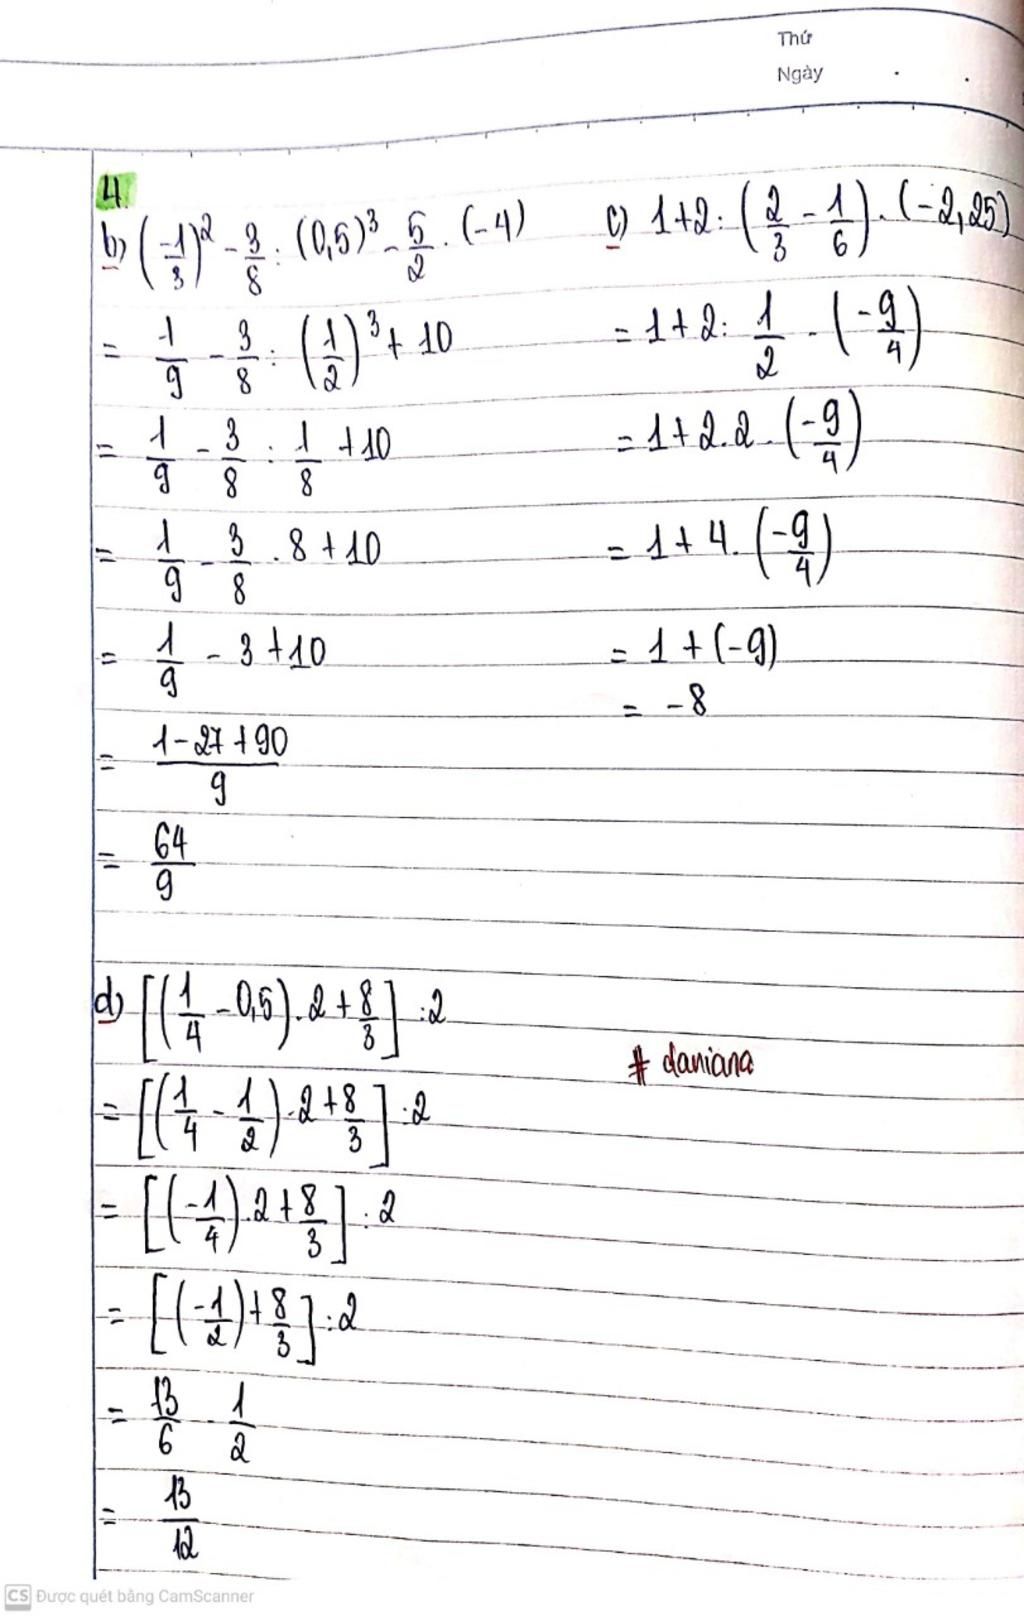 Thứ
Ngày . .
4.
b) (-1/3)² - 3/8 : (0,5)³ - 5/2 . (-4)
= 1/9 - 3/8 : (1/2)³ + 10
= 1/9 - 3/8 : 1/8 + 10
= 1/9 - 3/8 . 8 + 10
= 1/9 - 3 + 10
= (1 - 27 + 90)/9
= 64/9
c) 1 + 2 : (2/3 - 1/6) . (-2,25)
= 1 + 2 : 1/2 . (-9/4)
= 1 + 2 . 2 . (-9/4)
= 1 + 4 . (-9/4)
= 1 + (-9)
= -8
d) [(1/4 - 0,5) . 2 + 8/3] : 2
= [(1/4 - 1/2) . 2 + 8/3] : 2
= [(-1/4) . 2 + 8/3] : 2
= [(-1/2) + 8/3] : 2
= 13/6 . 1/2
= 13/12
# daniana
CS Được quét bằng CamScanner